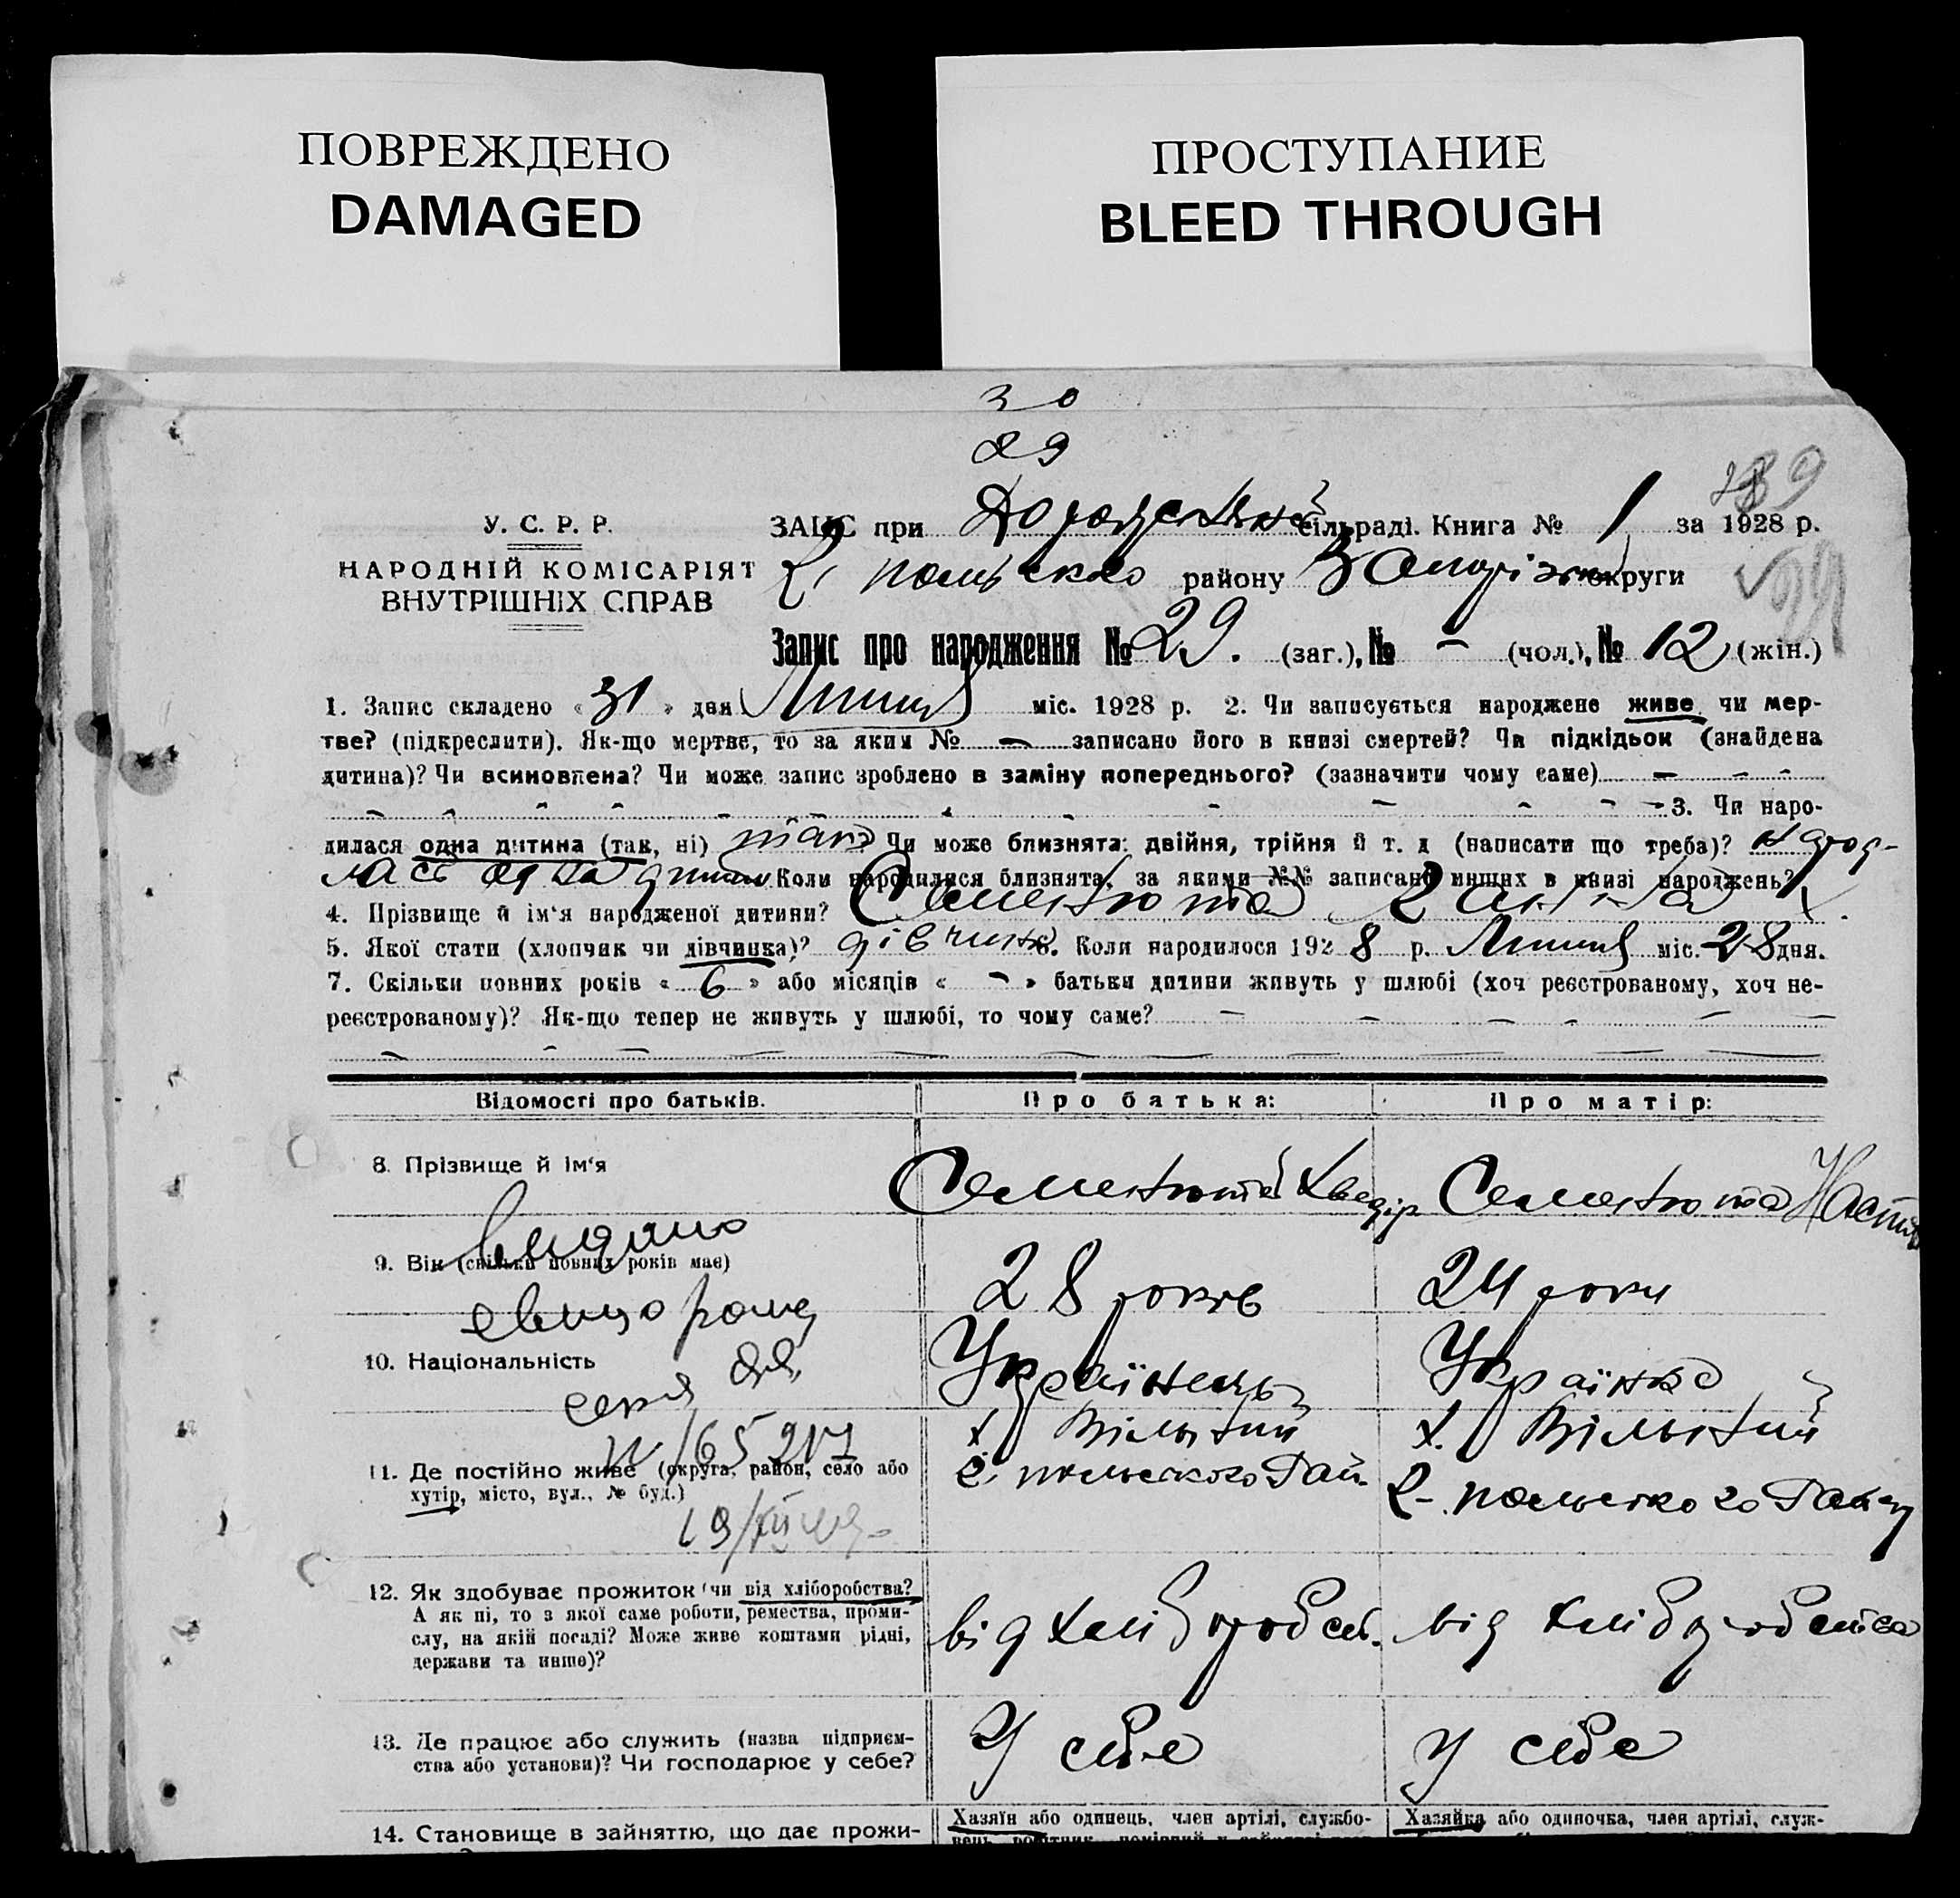 ПОВРЕЖДЕНО
DAMAGED
ПРОСТУПАНИЕ
BLEED THROUGH
30
29
У. С. Р. Р.
НАРОДНІЙ КОМІСАРІЯТ
ВНУТРІШНІХ СПРАВ
ЗАПИС при сільраді. Книга № 1 за 1928 р.
району Запорізької округи
Запис про народження № 29. (заг.), № - (чол.), № 12 (жін.)
1. Запис складено « 31 » дня Липня міс. 1928 р. 2. Чи записується народжене живе чи мер-
тве? (підкреслити). Як-що мертве, то за яким № - записано його в книзі смертей? Чи підкідьок (знайдена
дитина)? Чи всиновлена? Чи може запис зроблено в заміну попереднього? (зазначити чому саме) - - -
- - - - - - - - - - - - - 3. Чи наро-
дилася одна дитина (так, ні) так Чи може близнята: двійня, трійня й т. д (написати що треба)? народ-
лась одна дитина Коли народилися близнята, за якими №№ записано инших в книзі народжень?
4. Прізвище й ім'я народженої дитини? Семенюта Ганна
5. Якої стати (хлопчик чи дівчинка)? дівчинка 6. Коли народилося 1928 р. Липня міс. 28 дня.
7. Скільки повних років « 6 » або місяців « - » батьки дитини живуть у шлюбі (хоч реєстрованому, хоч не-
реєстрованому)? Як-що тепер не живуть у шлюбі, то чому саме? - - - - - -
Відомості про батьків. Про батька: Про матір:
8. Прізвище й ім'я Семенюта Хведір Семенюта Настя
Видано
9. Він (скільки повних років має) 28 років 24 роки
10. Національність Українець Українка
серія
№ 165217
х. Вільний х. Вільний
11. Де постійно живе (округа, район, село або
хутір, місто, вул., № буд.)
12. Як здобуває прожиток (чи від хліборобства?
А як ні, то з якої саме роботи, ремества, проми-
слу, на якій посаді? Може живе коштами рідні,
держави та инше)?
від хліборобст. від хліборобства
13. Де працює або служить (назва підприєм-
ства або установи)? Чи господарює у себе?
У себе У себе
14. Становище в зайняттю, що дає прожи-
Хазяїн або одинець, член артілі, службо-
Хазяйка або одиночка, член артілі, служ-